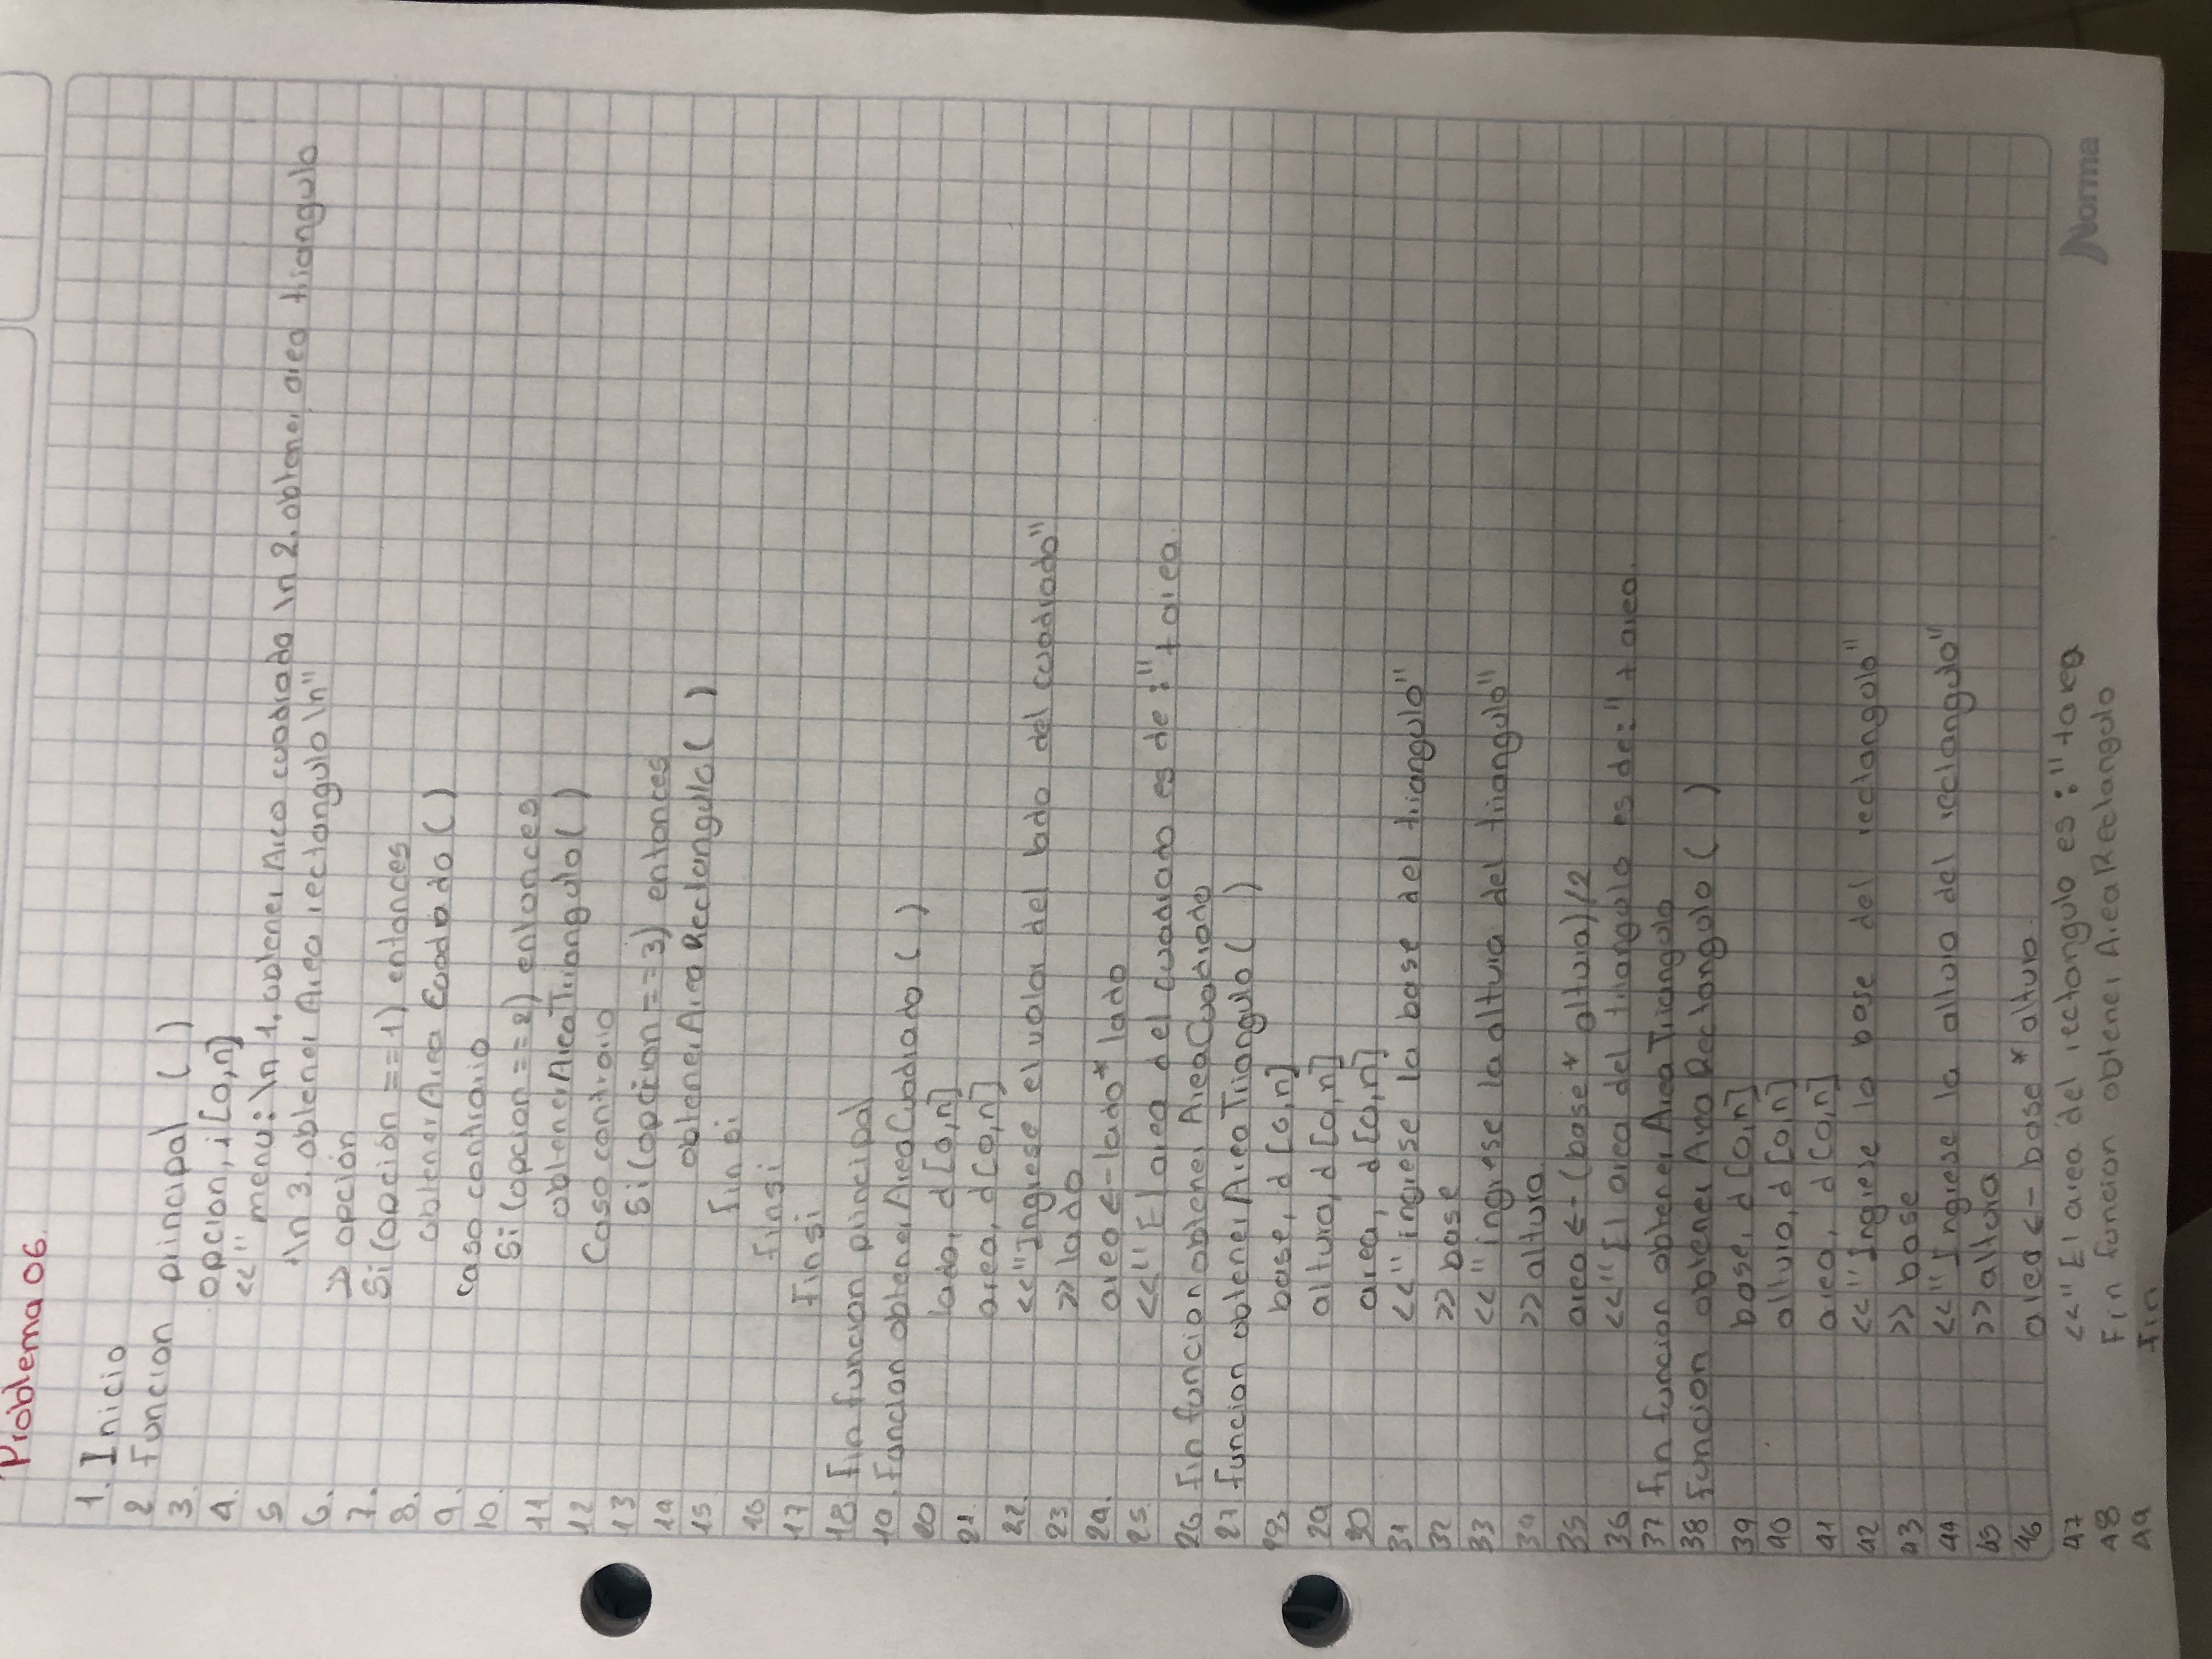 Problema 06.
1. Inicio
2 Funcion principal ( )
3. opcion, i [0,n]
4. <<"menu: \n 1. obtener Area cuadrado \n 2. obtener area triangulo
5 \n 3. obtener Area rectangulo \n"
6. >> opción
7. Si (opción == 1) entonces
8. obtenerArea Cuadrado ( )
9. caso contrario
10. Si (opcion == 2) entonces
11 obtenerAreaTriangulo ( )
12 Caso contrario
13 Si (opcion == 3) entonces
14 obtenerArea Rectangulo ( )
15 fin si
16 finsi
17 Finsi
18 Fin funcion principal
19. Funcion obtener AreaCuadrado ( )
20 lado, d [0,n]
21. area, d [0,n]
22. <<"Ingrese el valor del lado del cuadrado"
23 >> lado
24. area <- lado * lado
25. <<"El area del cuadrado es de :" + area.
26 Fin funcion obtener AreaCuadrado
27 funcion obtener Area Triangulo ( )
28 base, d [0,n]
29 altura, d [0,n]
30 area, d [0,n]
31 <<"ingrese la base del triangulo"
32 >> base
33 <<"ingrese la altura del triangulo"
34 >> altura
35 area <- (base * altura) /2
36 <<"El area del triangulo es de:" + area.
37 fin funcion obtener Area Triangulo
38 funcion obtener Area Rectangulo ( )
39 base, d [0,n]
40 altura, d [0,n]
41 area, d [0,n]
42 <<"Ingrese la base del rectangulo"
43 >> base
44 <<"Ingrese la altura del rectangulo"
45 >> altura
46 area <- base * altura.
47 <<"El area del rectangulo es :" + area
48 Fin funcion obtener Area Rectangulo
49 Fin
Norma